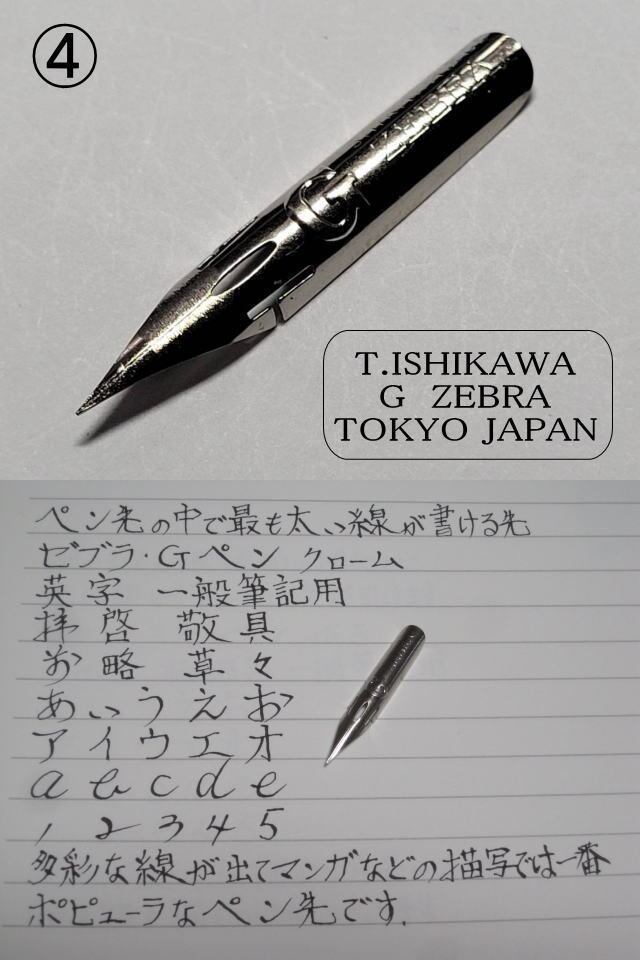 ④
G ZEBRA
T.ISHIKAWA
G ZEBRA
TOKYO JAPAN
ペン先の中で最も太い線が書ける先
ゼブラ・Gペン クローム
英字 一般筆記用
拝啓 敬具
前略 草々
あいうえお
アイウエオ
a b c d e
1 2 3 4 5
多彩な線が出てマンガなどの描写では一番
ポピューラなペン先です.